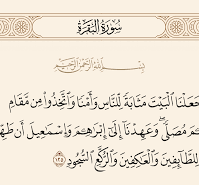 سُورَةُ البَقَرَةِ
بِسْمِ اللَّهِ الرَّحْمَٰنِ الرَّحِيمِ
جَعَلْنَا ٱلْبَيْتَ مَثَابَةً لِّلنَّاسِ وَأَمْنًا وَٱتَّخِذُوا۟ مِن مَّقَامِ
مَ مُصَلًّى ۖ وَعَهِدْنَآ إِلَىٰٓ إِبْرَٰهِـۧمَ وَإِسْمَـٰعِيلَ أَن طَهِّ
لِلطَّآئِفِينَ وَٱلْعَـٰكِفِينَ وَٱلرُّكَّعِ ٱلسُّجُودِ ١٢٥